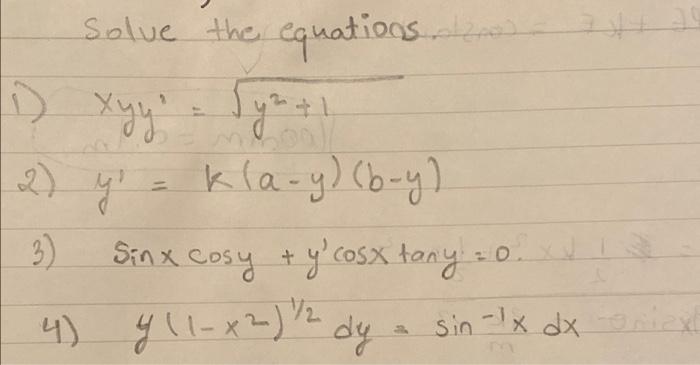 Solve the equations.
1) xyy' = √y² + 1
2) y' = k(a-y)(b-y)
3) sinx cosy + y'cosx tany = 0.
4) y(1-x²)^1/2 dy = sin⁻¹x dx